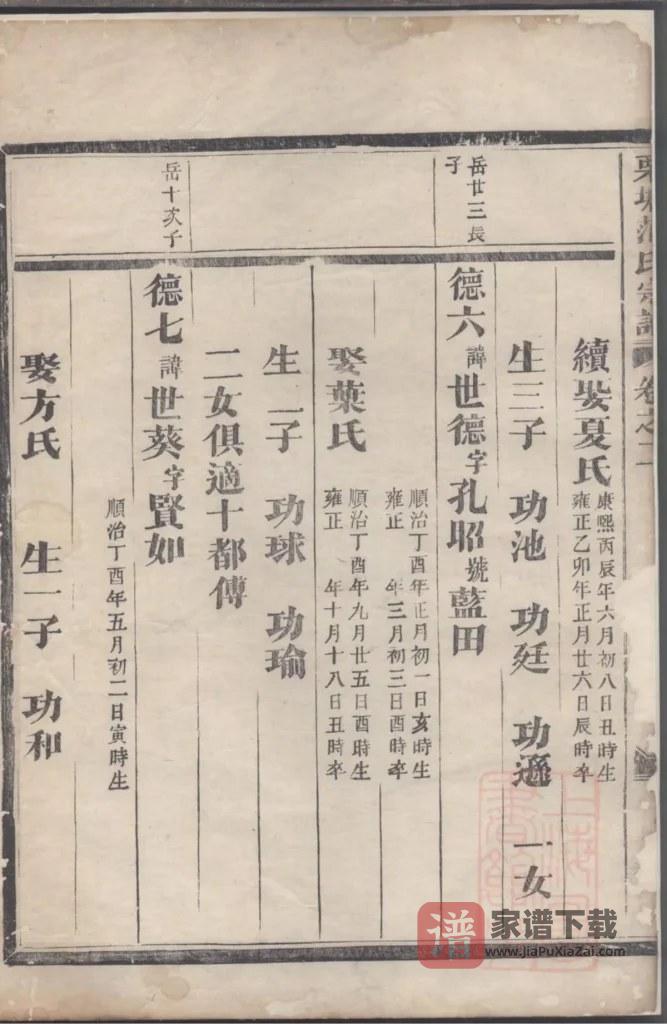 范氏宗譜 卷之二
續娶夏氏
康熙丙辰年六月初八日丑時生
雍正乙卯年正月廿六日辰時卒
生三子 功池 功廷 功遜 一女
岳廿三長子
德六諱世德字孔昭號藍田
順治丁酉年正月初一日亥時生
雍正 年三月初三日酉時卒
娶葉氏
順治丁酉年九月廿五日酉時生
雍正 年十月十八日丑時卒
生二子 功球 功瑜
二女俱適十都傅
岳十次子
德七諱世葵字賢如
順治丁酉年五月初二日寅時生
娶方氏 生一子 功和
譜 家谱下载
www.JiaPuXiaZai.com